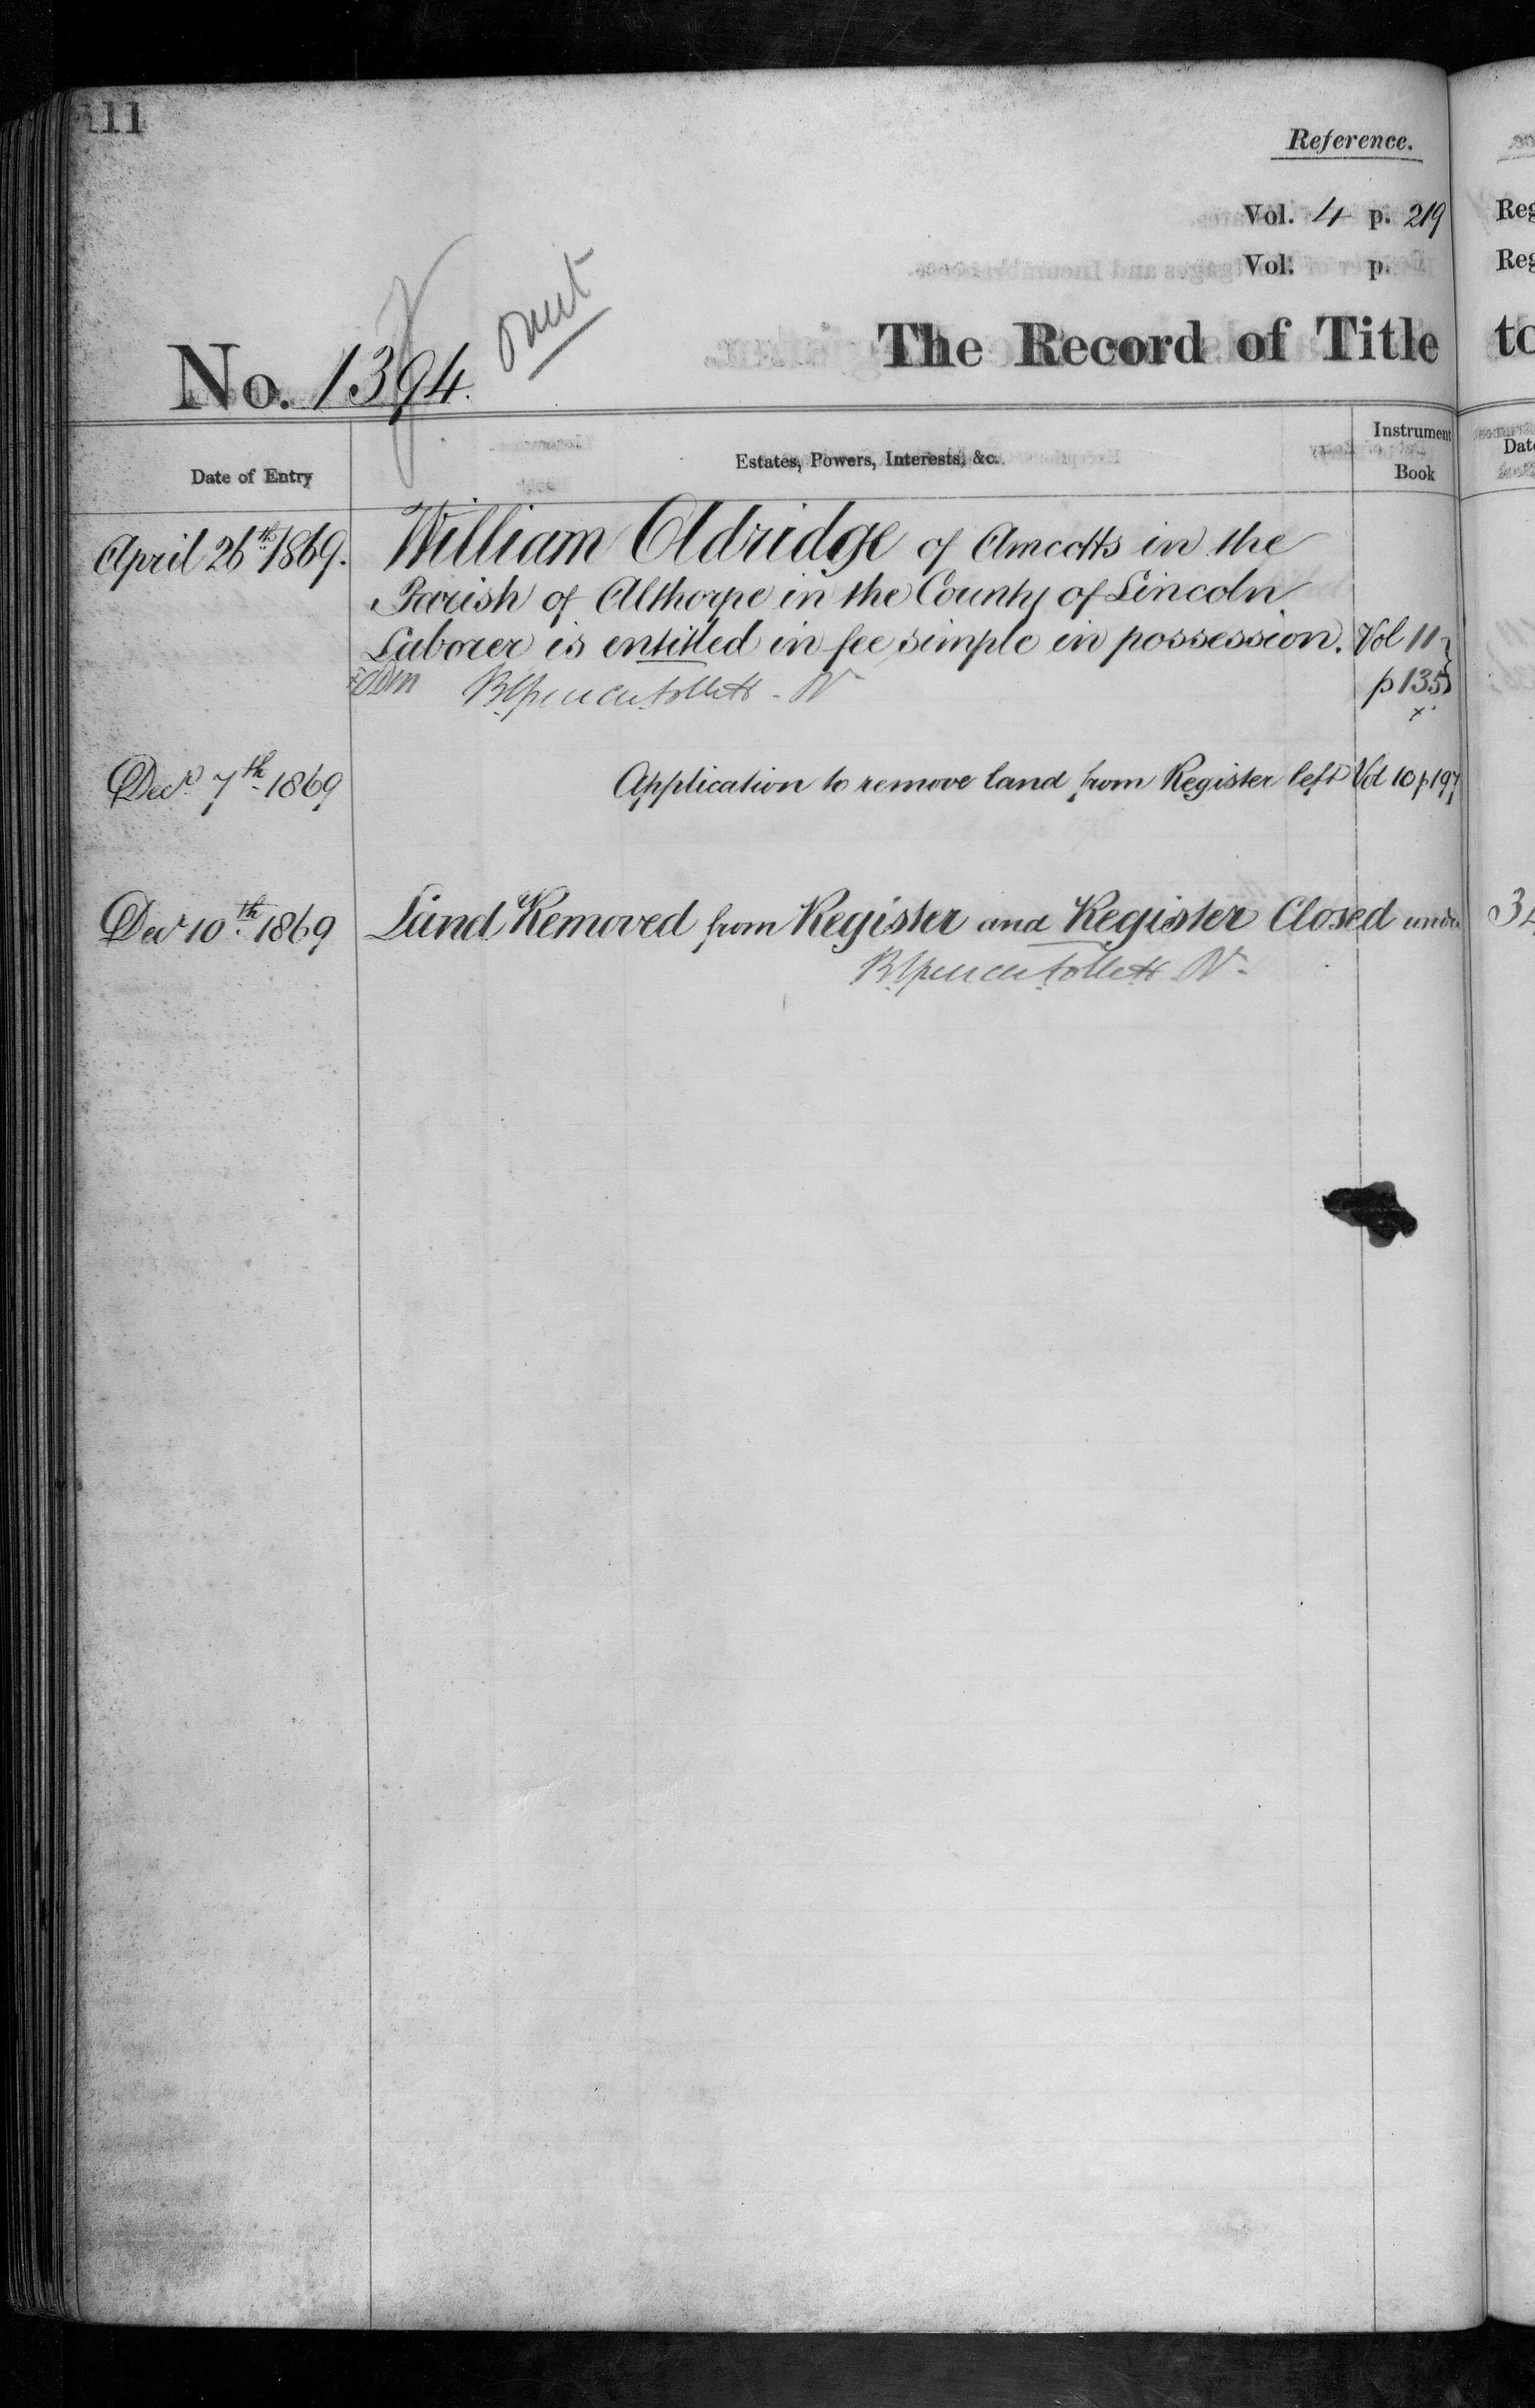 111
Reference.
Vol. 4 p. 219
Vol. p.
omit
No. 1394.
The Record of Title
Date of Entry
Estates, Powers, Interests, &c.
Instrument Book
April 26th 1869.
William Aldridge of Amcotts in the
Parish of Althorpe in the County of Lincoln
Laborer is entitled in fee simple in possession. Vol 11
p 135
Decr 7th 1869 Application to remove land from Register left Vol 10 p 197
Decr 10th 1869 Land Removed from Register and Register Closed under 34
Reg
Reg
to
Date